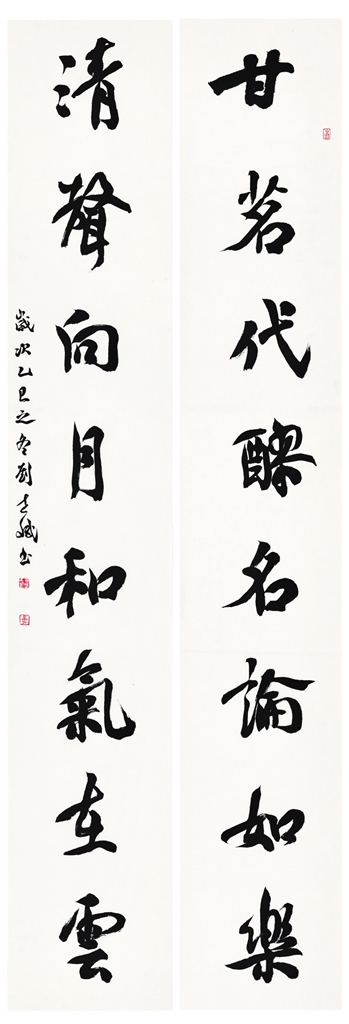 甘茗代醪名論如樂
清聲向月和氣在雲
歲次乙巳之冬劉志斌書